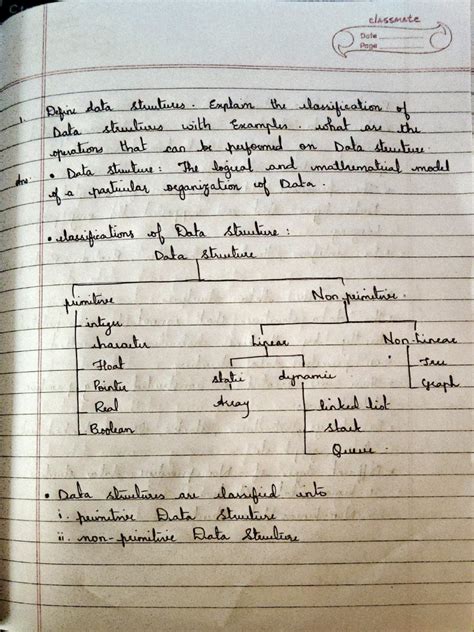 classmate
Date
Page
1. Define data structures. Explain the classification of
Data structures with Examples. what are the
operations that can be performed on Data structure.
Ans: • Data structure: The logical and mathematical model
of a particular organization of Data.
• classifications of Data structure:
Data structure
primitive Non-primitive.
integer Linear Non-linear
character
Float static dynamic Tree
Pointer Graph
Real Array linked list
Boolean Stack
Queue
• Data structures are classified into
i. primitive Data Structure
ii. non-primitive Data Structure